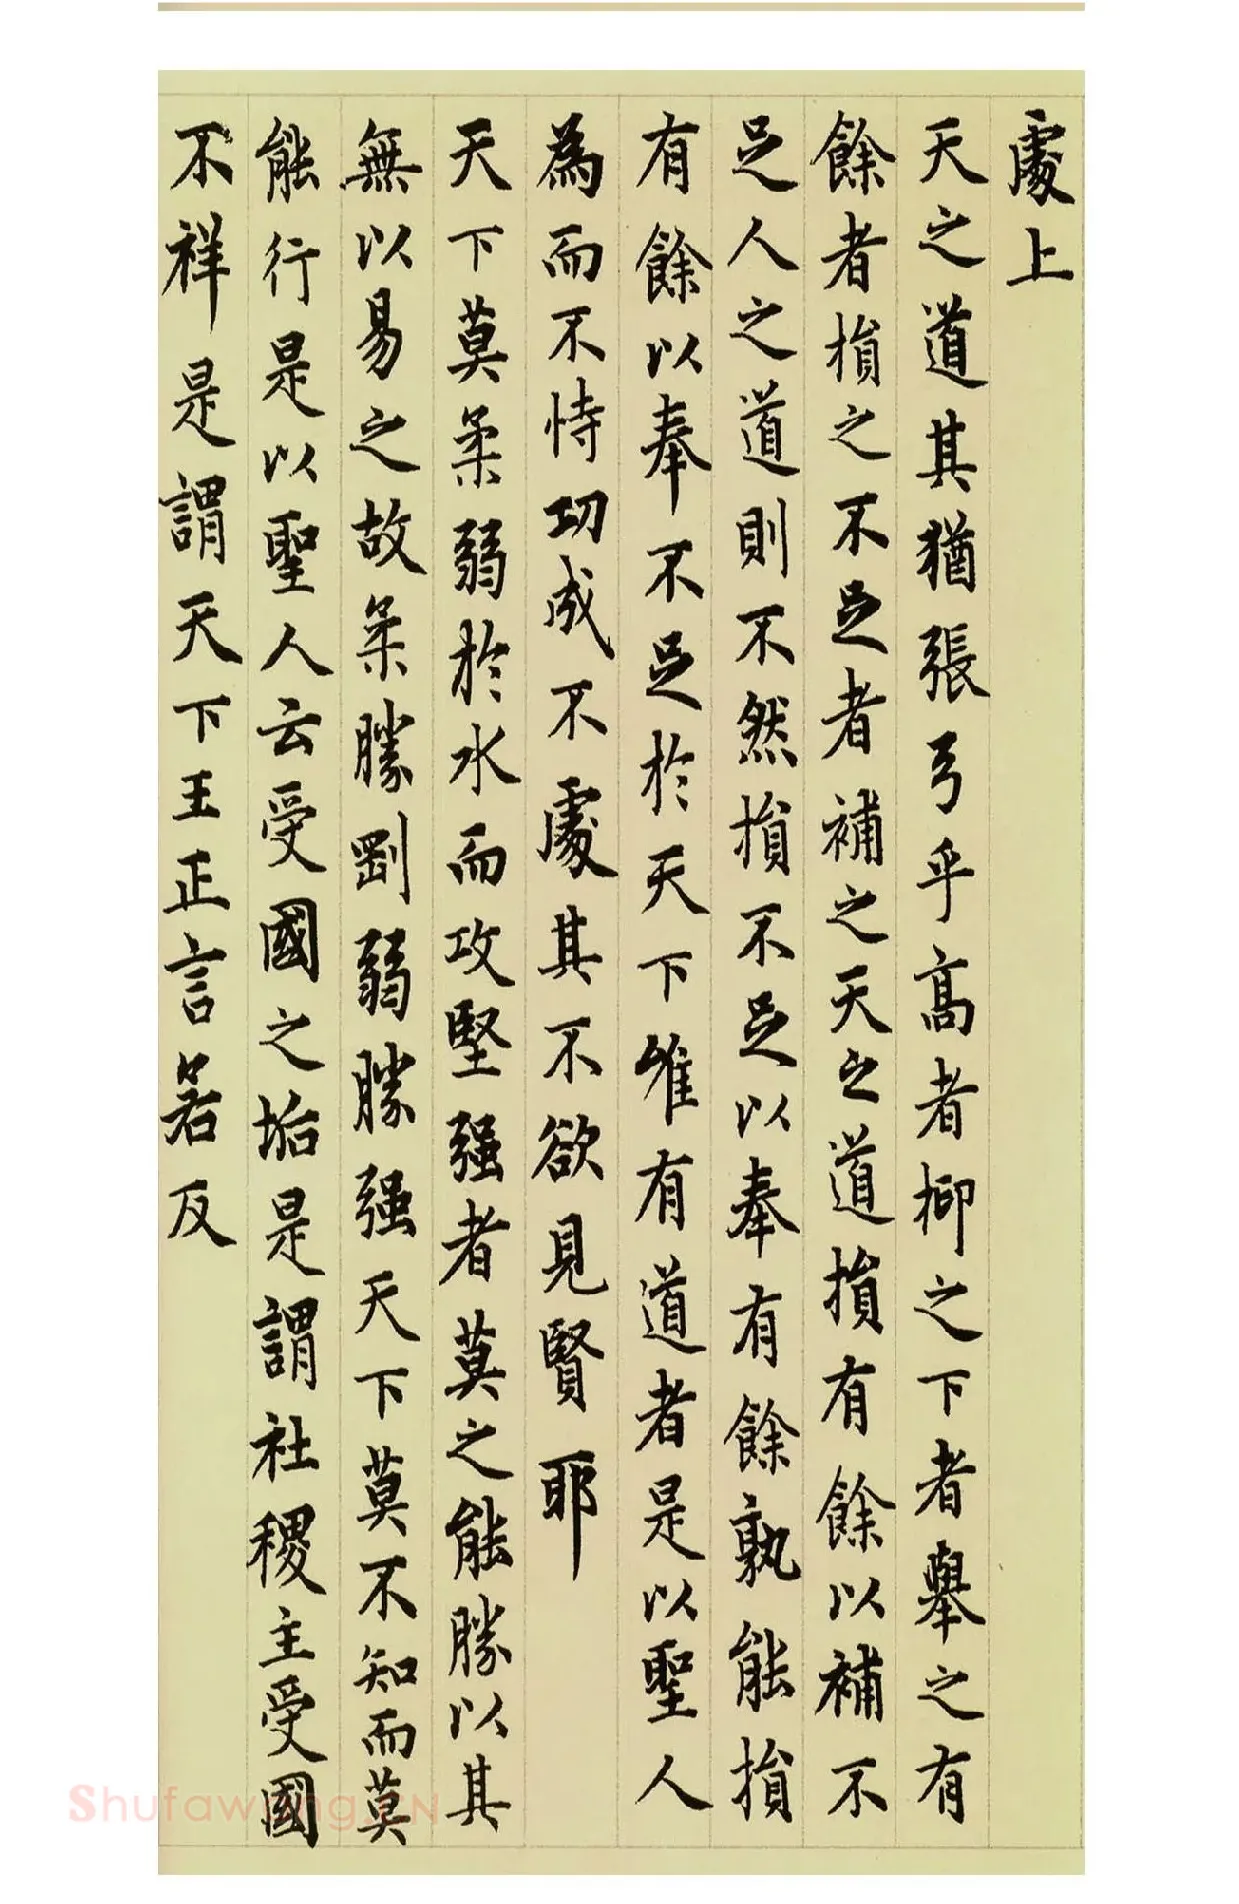 處上
天之道其猶張弓乎高者抑之下者舉之有
餘者損之不足者補之天之道損有餘以補不
足人之道則不然損不足以奉有餘孰能損
有餘以奉不足於天下唯有道者是以聖人
為而不恃功成不處其不欲見賢耶
天下莫柔弱於水而攻堅强者莫之能勝以其
無以易之故柔勝剛弱勝强天下莫不知而莫
能行是以聖人云受國之垢是謂社稷主受國
不祥是謂天下王正言若反
Shufawang.CN